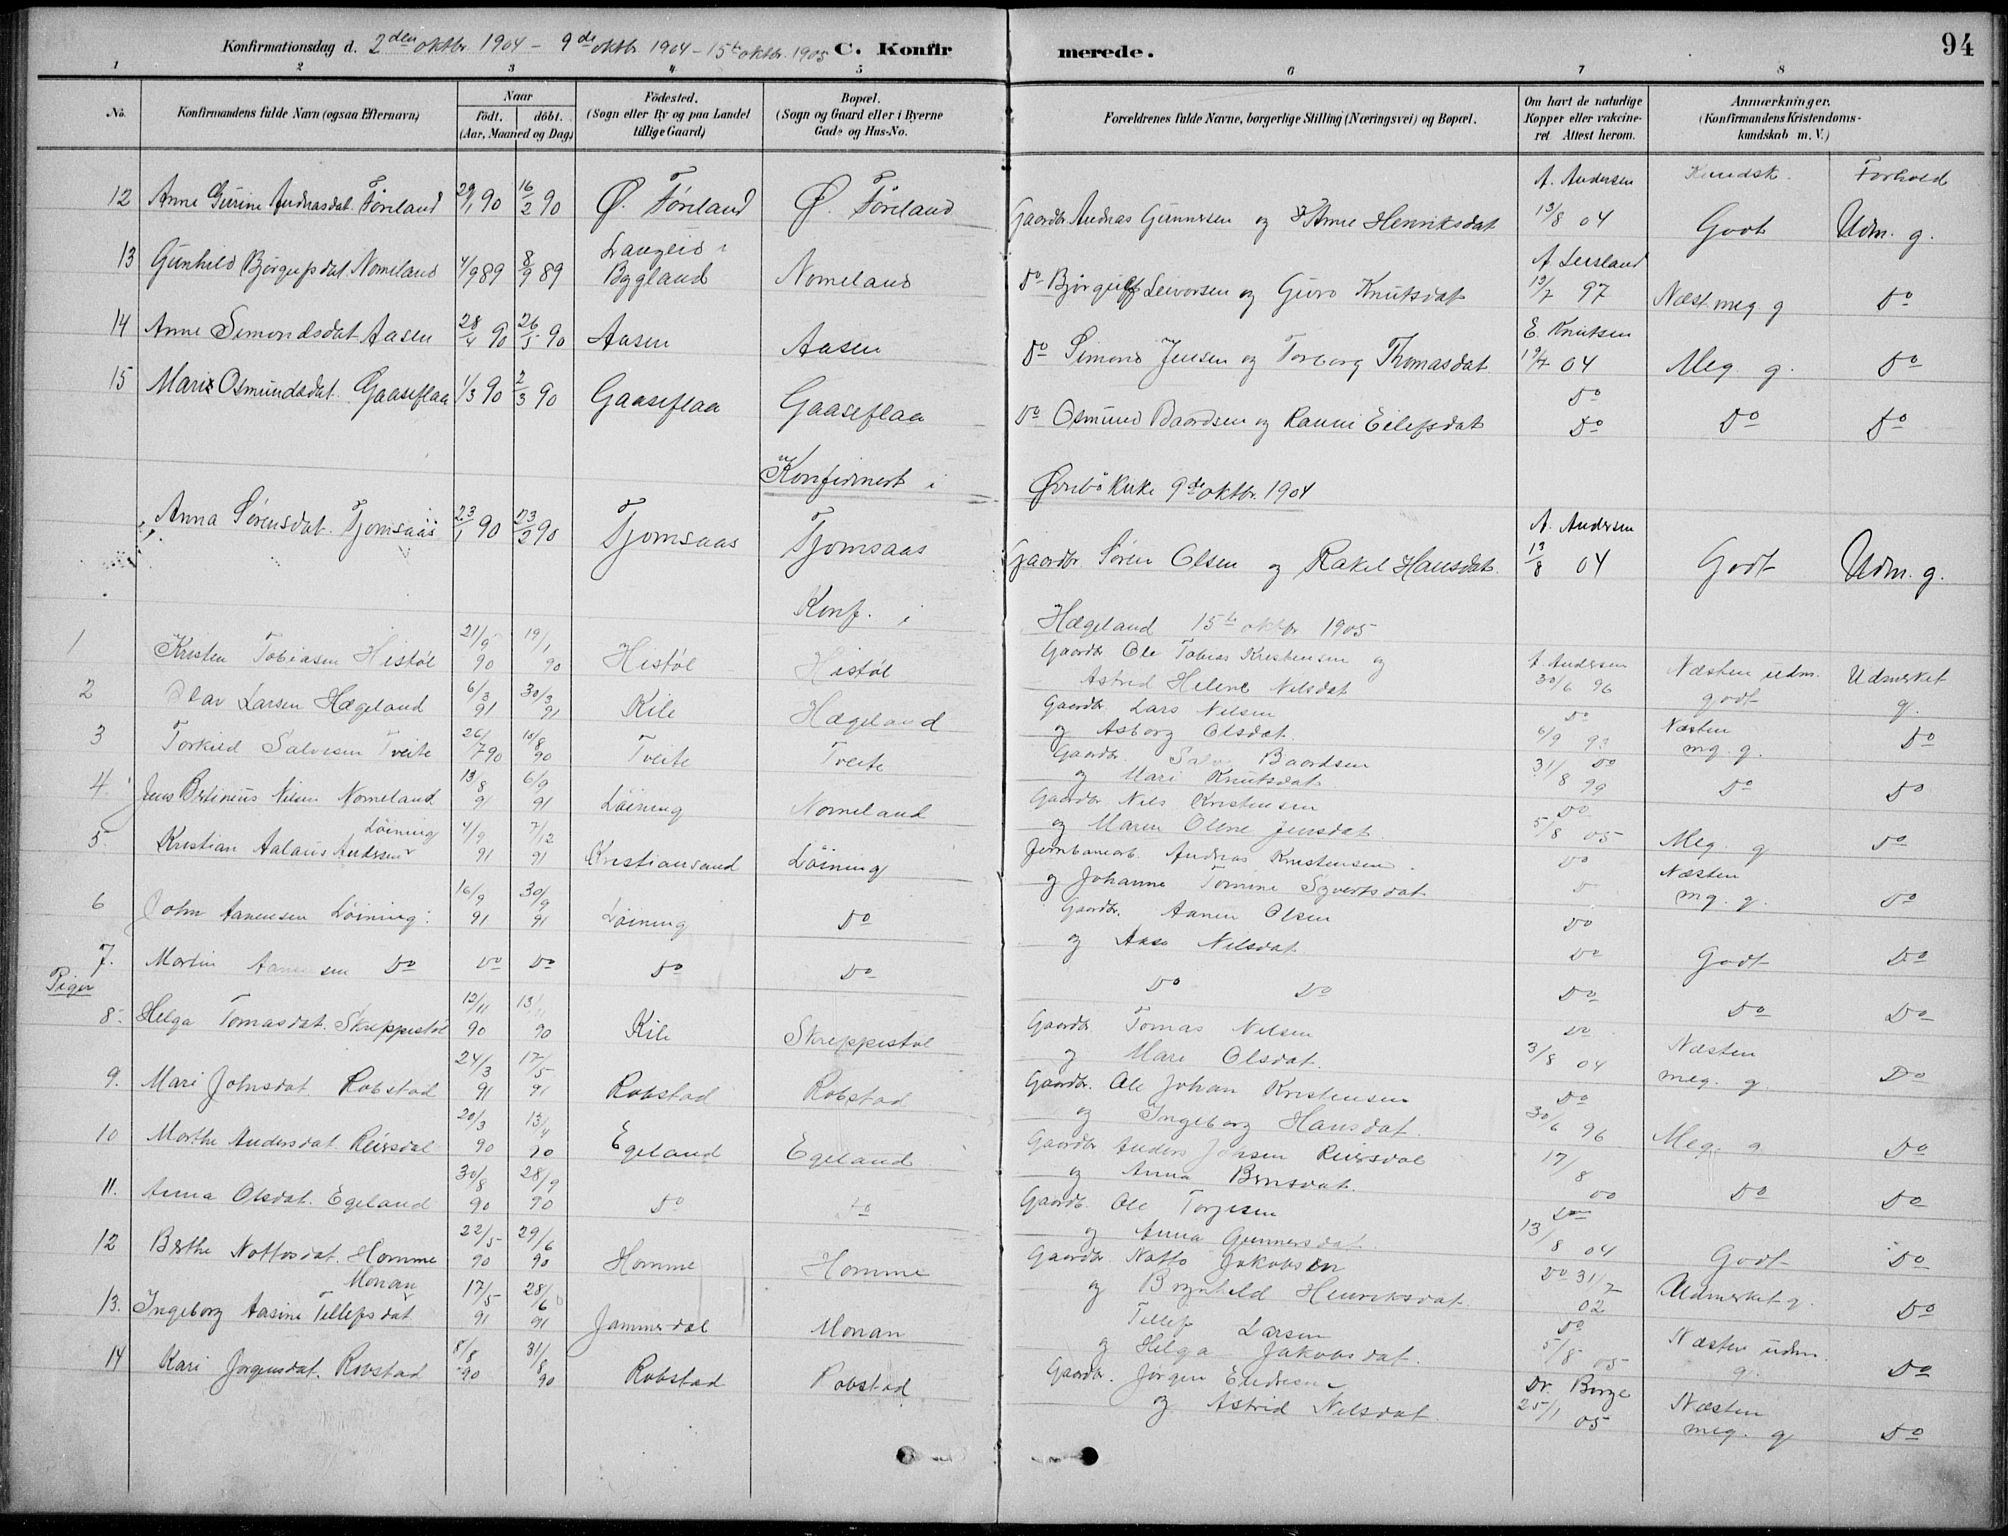 Konfirmationsdag d. 2den oktbr. 1904 - 9de oktbr 1904 - 15de oktbr. 1905 C. Konfirmerede. 94
1 2 3 4 5 6 7 8
No. Konfirmandens fulde Navn (ogsaa Efternavn) Naar født. døbt. (Aar, Maaned og Dag) Fødested. (Sogn eller By og paa Landet tillige Gaard) Bopæl. (Sogn og Gaard eller i Byerne Gade og Hus-No. Forældrenes fulde Navne, borgerlige Stilling (Næringsvei) og Bopæl. Om havt de naturlige Kopper eller vakcineret. Attest herom. Anmærkninger. (Konfirmandens Kristendomskundskab m. V.)
A. Andersen Kundsk. Forhold
12 Anne Gurine Andreasdat. Føreland 29/1 90 16/2 90 Ø. Føreland Ø. Føreland Gaardbr. Andreas Gunnersen og Anne Henriksdat 13/8 04 Godt Udm. g.
13 Gunhild Bjørgufsdat Nomeland 4/9 89 8/9 89 Langeid i Bygland Nomeland Do Bjørgulf Leivorsen og Guro Knutsdat A Liesland 13/7 97 Næst. meg g Do
14 Anne Simondsdat Aasen 28/4 90 26/5 90 Aasen Aasen Do Simond Jensen og Torborg Thomasdat E. Knutsen 19/7 04 Meg. g. Do
15 Mari Osmundsdat. Gaaseflaa 1/3 90 2/3 90 Gaaseflaa Gaaseflaa Do Osmund Baardsen og Ranni Eilefsdat Do Do Do Do
Konfirmert i Øvrebö kirke 9de oktbr. 1904
Anna Sørensdat. Tjomsaas 23/1 90 23/2 90 Tjomsaas Tjomsaas Gaardbr Søren Olsen og Rakel Hansdat. A. Andersen 13/8 04 Godt Udm. g.
Konf. i Hægeland 15de oktbr. 1905
1 Kristen Tobiasen Histøl 21/9 90 19/1 90 Histøl Histøl Gaardbr Ole Tobias Kristensen og Astrid Helene Nilsdat A. Andersen 30/6 96 Næsten udm. godt Udmerket g.
2 Olav Larsen Hægeland 6/3 91 30/3 91 Kile Hægeland Gaardbr. Lars Nilsen og Asborg Olsdat. Do 6/9 93 Næsten mg. g. Do
3 Torkild Salvesen Tveite 26/7 90 10/8 90 Tveite Tveite Gaardbr. Salve Baardsen og Mari Knutsdat Do 31/8 99 Do Do
4. Jens Bertineus Nilsen Nomeland 13/8 91 6/9 91 Löining Nomeland Gaardbr. Nils Kristensen og Maren Olene Jensdat. Do 5/8 05 Meg. g Do
5. Kristian Aalaus Andersen Löining 4/9 91 7/12 91 Kristiansand Löining Jernbanearb. Andreas Kristensen og Johanne Tomine Syvertsdat Do Næsten mg. g. Do
6 John Aanensen Löining 16/9 91 30/9 91 Löining Do Gaardbr. Aanen Olsen og Aase Nilsdat Do Do Godt Do
7. Martin Aanensen Do Do Do Do Do Do Do Do Do Do
Piger
8. Helga Tomasdat. Skreppestøl 12/11 90 13/11 90 Kile Skreppestøl Gaardbr Tomas Nilsen og Mari Olsdat. Do 3/8 04 Næsten meg. g. Do
9. Mari Johnsdat. Robstad 24/3 91 17/5 91 Robstad Robstad Gaardbr. Ole Johan Kristensen og Ingeborg Hansdat. Do 30/6 96 Meg. g Do
10 Marthe Andersdat Reiersdal 20/3 90 13/4 90 Egeland Egeland Gaardbr Anders Johnsen Reiersdal og Anna Berusdat. 17/8 00 Do Do
11. Anna Olsdat. Egeland 30/8 90 28/9 90 Do Do Gaardbr. Ole Torjesen og Anna Gunnersdat. Do 13/8 04 Godt Do
12 Berthe Nottosdat. Homme 22/5 90 29/6 90 Homme Homme Gaardbr. Notto Jakobsen og Brynhild Henriksdat Do 31/7 02 Udmerket g. Do
13. Ingeborg Aasine Tellefsdat Monan 17/5 91 28/6 91 Jammerdal Monan Tellef Larsen og Helga Jakobsdat. Do 5/8 05 Næsten udm. g. Do
14 Kari Jørgensdat. Robstad 8/8 90 31/8 90 Robstad Robstad Gaardbr. Jørgen Endresen og Astrid Nilsdat Dr. Borge 25/1 05 Næsten meg. g Do